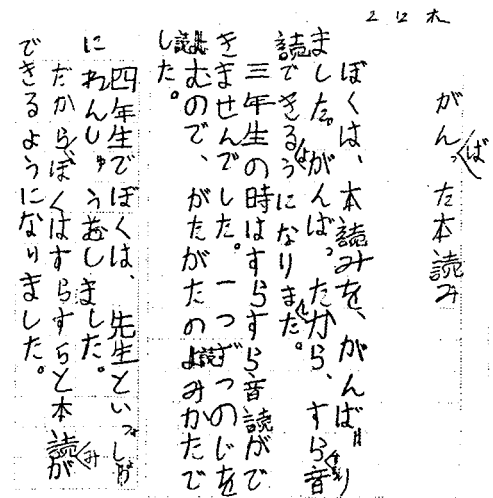 2 12 木
がんばった本読み
ぼくは、本読みを、がんばり
ました。がんばったから、すらすら音
読できるようになりました。
三年生の時はすらすら音読がで
きませんでした。一つずつのじを
読むので、がたがたの読みかたで
した。
四年生でぼくは、先生といっしょ
にれんしゅうをしました。
だから、ぼくはすらすらと本読みが
できるようになりました。